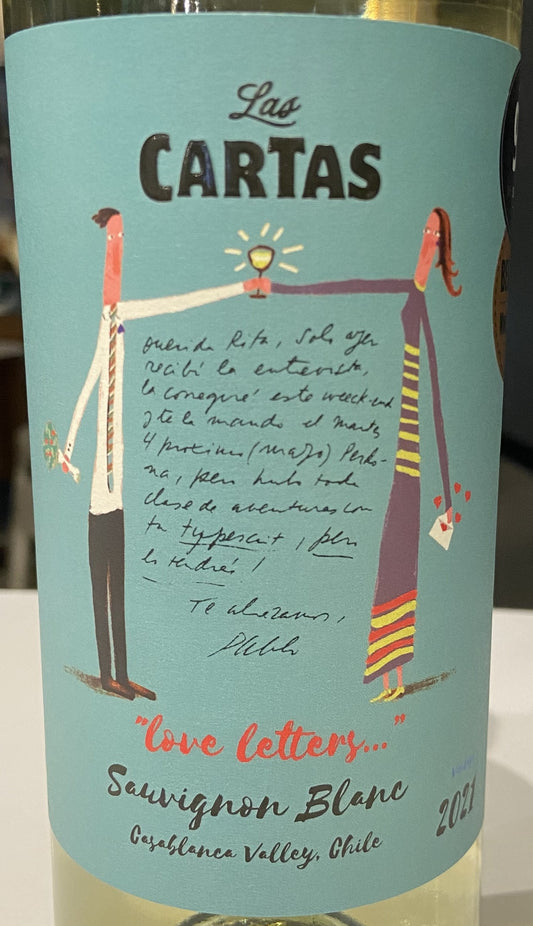 Las
CARTAS
Querida Rita, Solo ayer
recibí la entrevista,
la corregiré este week-end
y te la mando el martes
4 proximo (mayo) Perdo-
na, pero hubo toda
clase de aventuras con
tu typescrit, pero
lo tendrás!
Te abrazamos,
Pablo
"love letters..."
Sauvignon Blanc
Casablanca Valley, Chile
2021